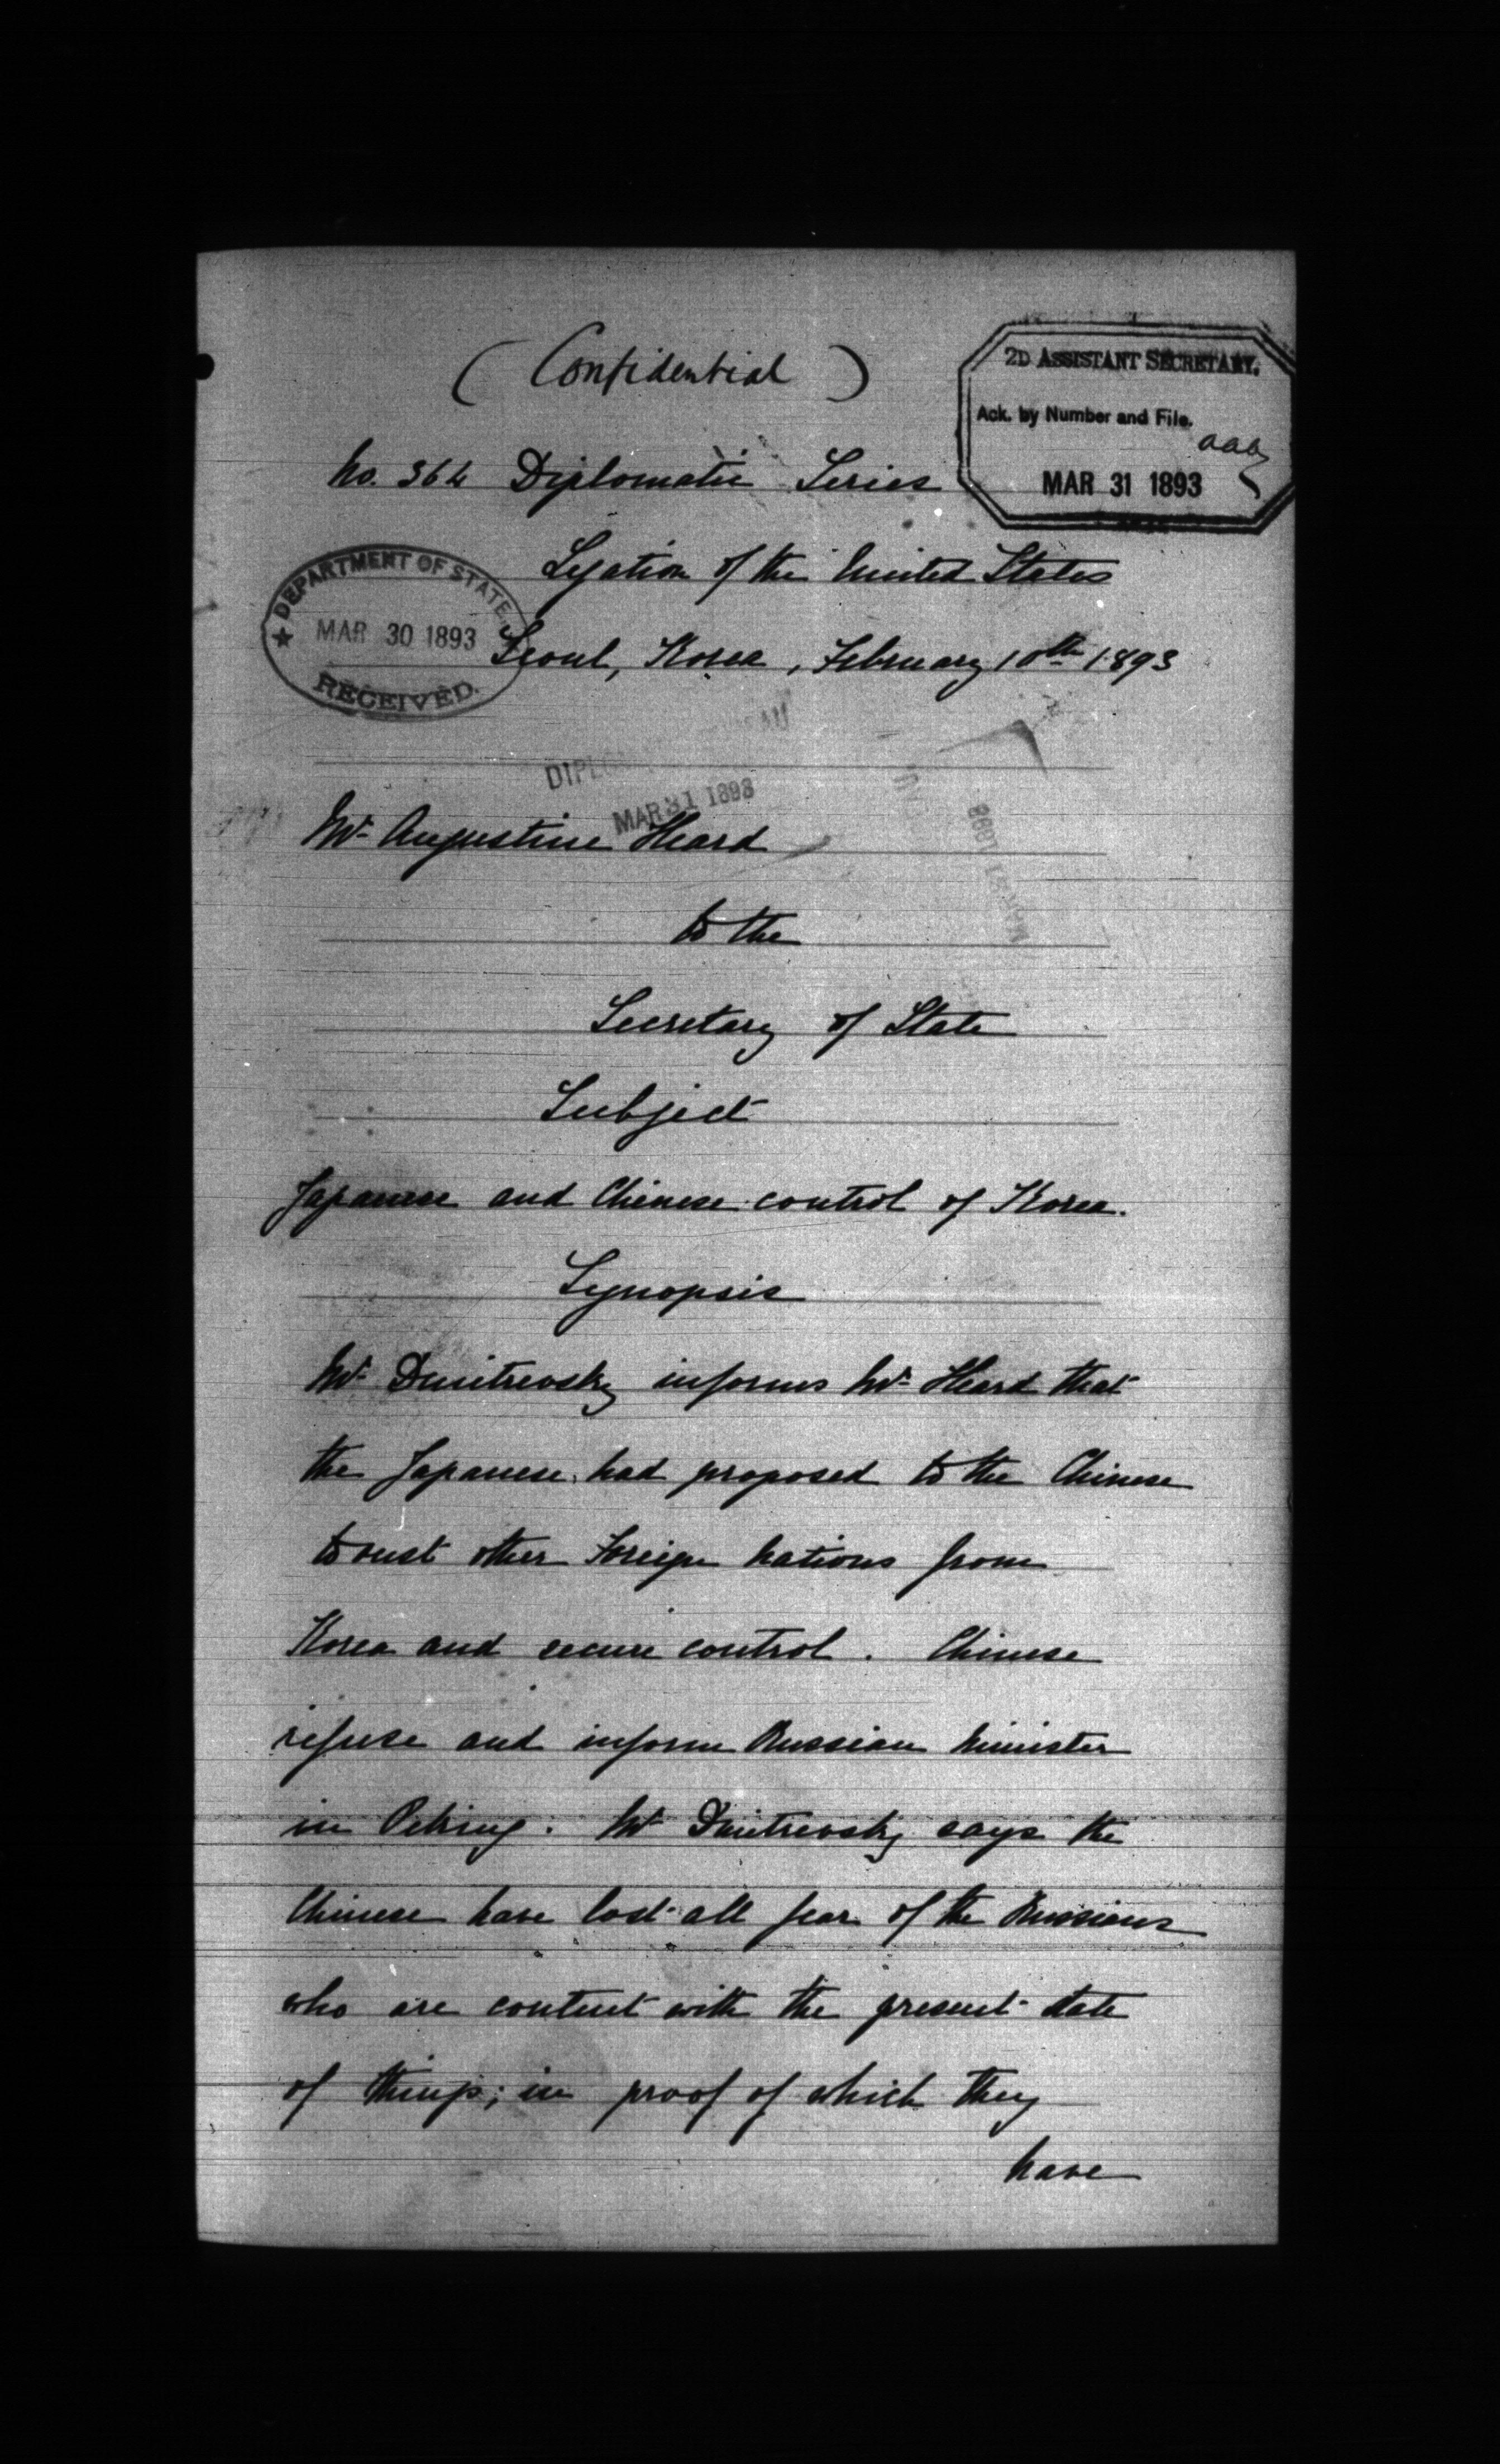 ( Confidential )
2D ASSISTANT SECRETARY.
Ack. by Number and File.
MAR 31 1893
No. 364 Diplomatic Series
Legation of the United States
DEPARTMENT OF STATE
MAR 30 1893
RECEIVED.
Seoul, Korea, February 10th 1893
MAR 31 1893
Mr Augustine Heard
to the
Secretary of State
Subject
Japanese and Chinese control of Korea.
Synopsis
Mr Dmitrevsky informs Mr Heard that
the Japanese had proposed to the Chinese
to oust other Foreign Nations from
Korea and secure control. Chinese
refuse and inform Russian Minister
in Peking. Mr Dmitrevsky says the
Chinese have lost all fear of the Russians
who are content with the present state
of things; in proof of which they
have